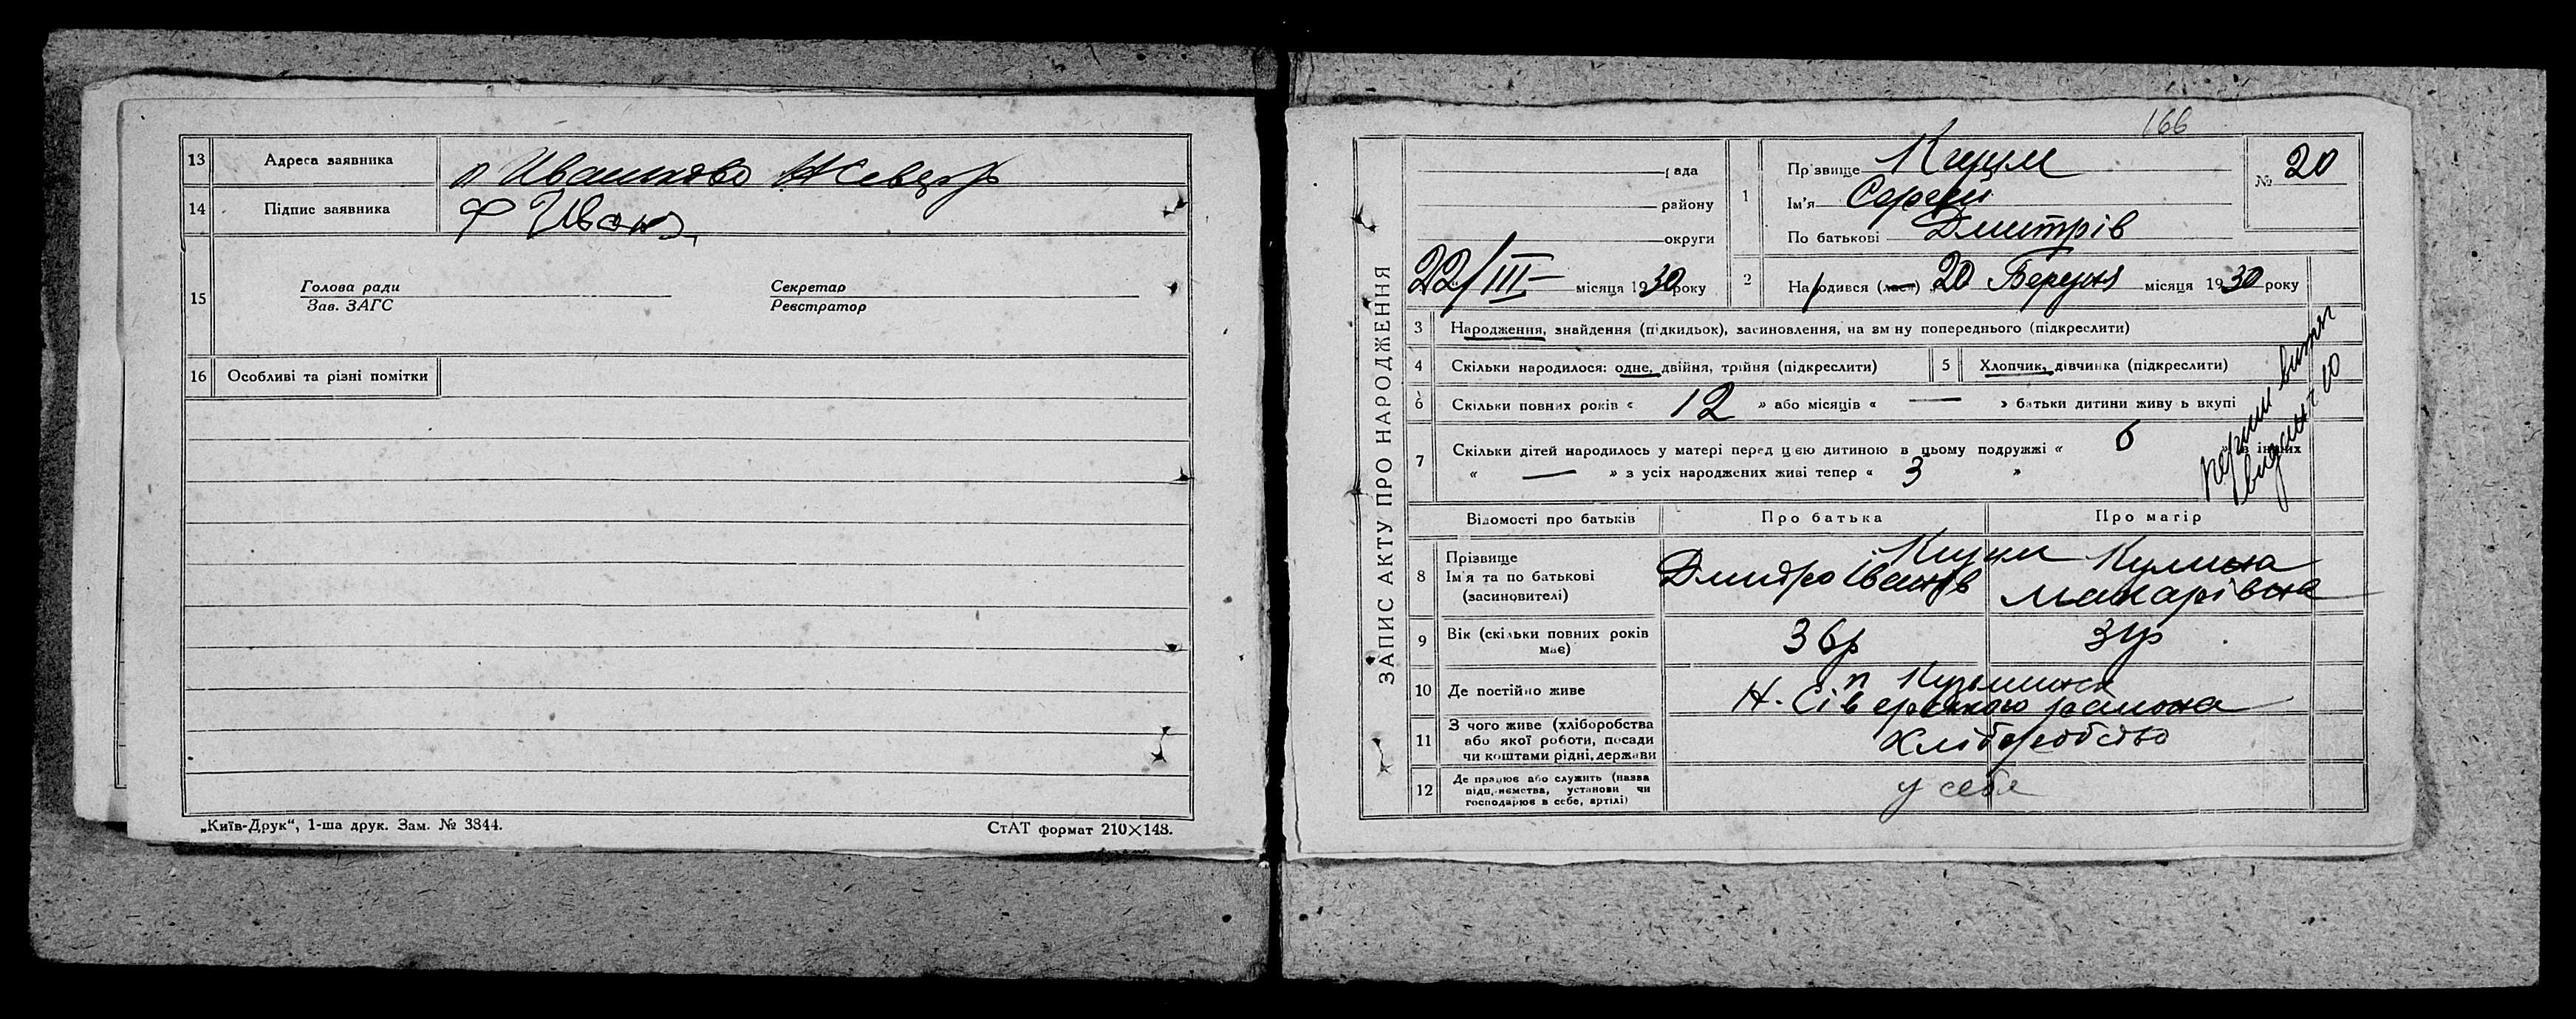 13 Адреса заявника п Ивашково
14 Підпис заявника
15 Голова ради Секретар
Зав. ЗАГС Реєстратор
16 Особливі та різні помітки
„Київ-Друк“, 1-ша друк. Зам. № 3344.
СтАТ формат 210×148.
166
ЗАПИС АКТУ ПРО НАРОДЖЕННЯ
рада
району
округи
22/III місяця 1930 року
1 Прізвище
Ім'я Сергій
По батькові Дмитрів
№ 20
2 Народився (лася) 20 Березня місяця 1930 року
3 Народження, знайдення (підкидьок), засиновлення, на зміну попереднього (підкреслити)
4 Скільки народилося: одне, двійня, трійня (підкреслити)
5 Хлопчик, дівчинка (підкреслити)
6 Скільки повних років « 12 » або місяців « — » батьки дитини живуть вкупі
7 Скільки дітей народилось у матері перед цією дитиною в цьому подружжі « 6 » в інших
« — » з усіх народжених живі тепер « 3 »
Відомості про батьків Про батька Про матір
8 Прізвище
Ім'я та по батькові
(засиновителі)
Дмитро Іванів
Кулина
Макарівна
9 Вік (скільки повних років має) 36р
10 Де постійно живе п
Н-Сіверського района
11 З чого живе (хліборобства
або якої роботи, посади
чи коштами рідні, держави
Хліборобство
12 Де працює або служить (назва
підприємства, установи чи
господарює в себе, артілі)
у себе